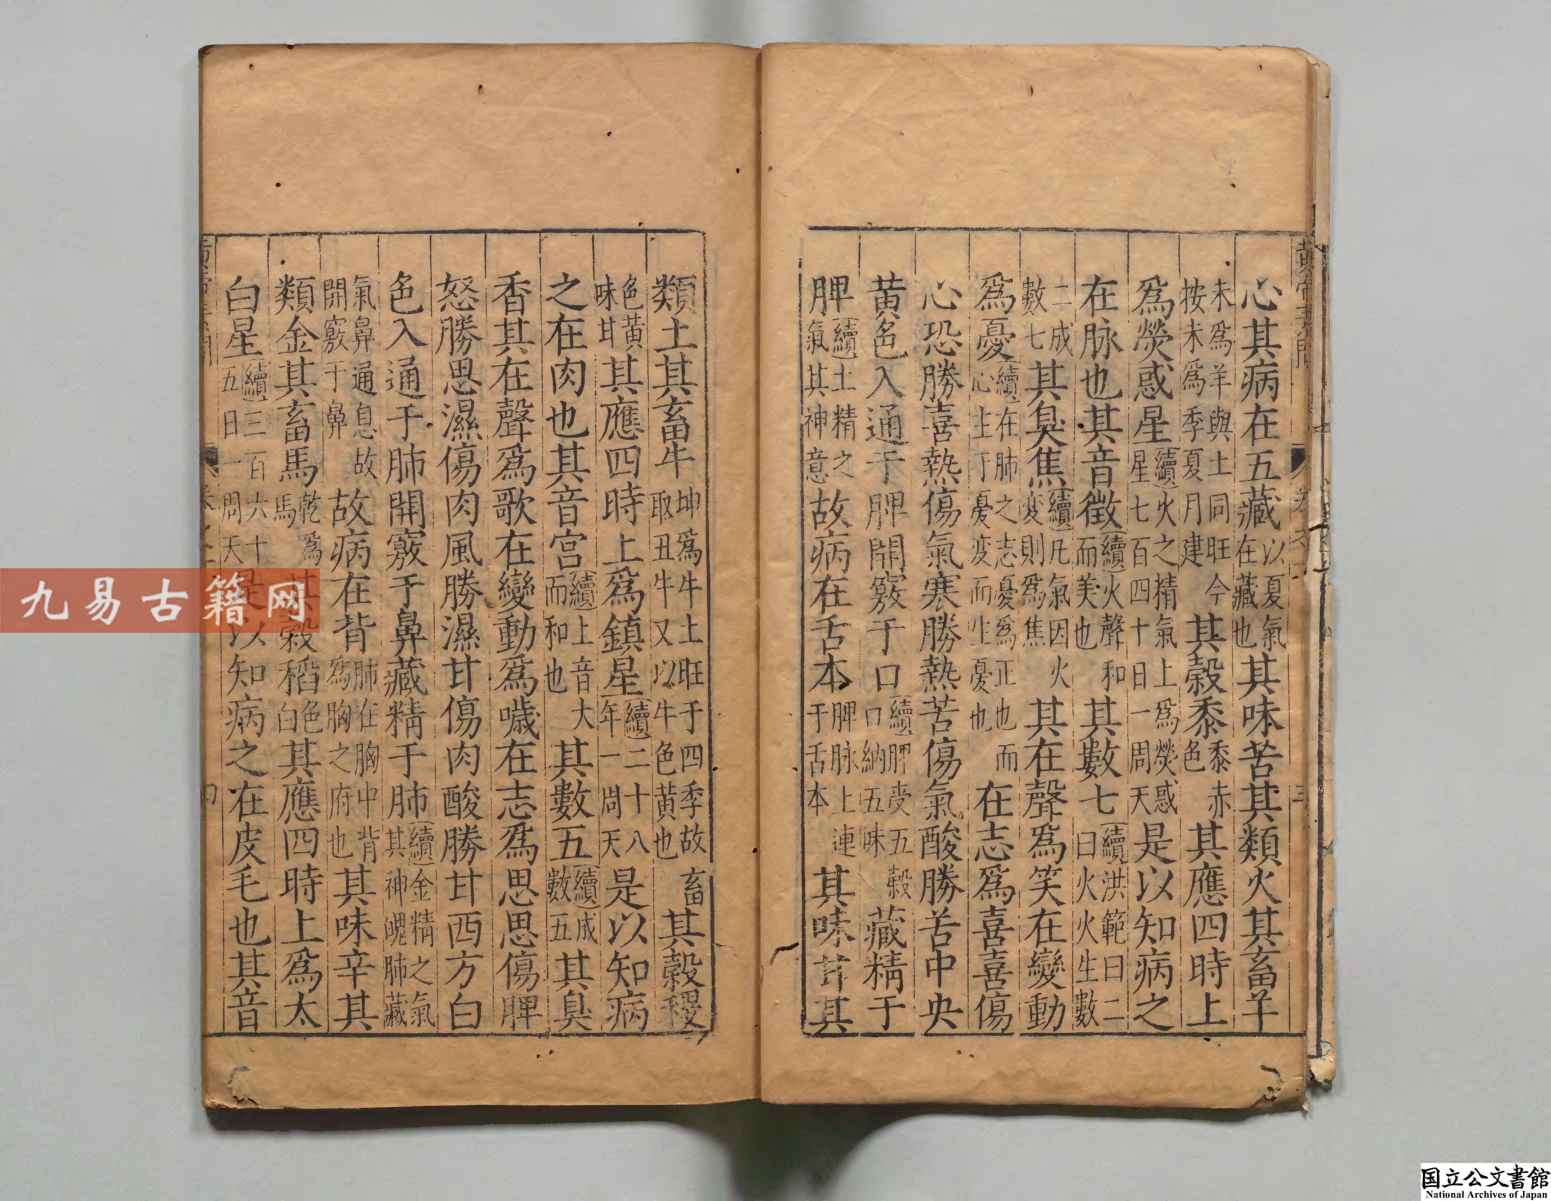 心其病在五藏以夏氣在藏也其味苦其類火其畜羊
未爲羊與土同旺今按未爲季夏月建其穀黍黍赤色其應四時上
爲熒惑星續火之精氣上爲熒惑星七百四十日一周天是以知病之
在脉也其音徵續火聲和而美也其數七續洪範曰二曰火火生數
二成數七其臭焦續凡氣因火變則爲焦其在聲爲笑在變動
爲憂續在肺之志憂爲正也而心主於憂變而生憂也在志爲喜喜傷
心恐勝喜熱傷氣寒勝熱苦傷氣酸勝苦中央
黃色入通于脾開竅于口續脾受五穀口納五味藏精于
脾續土精之氣其神意故病在舌本脾脉上連于舌本其味甘其
類土其畜牛坤爲牛土旺于四季故取丑牛又以牛色黃也畜其穀稷
色黃味甘其應四時上爲鎮星續二十八年一周天是以知病
之在肉也其音宮續土音大而和也其數五續成數五其臭
香其在聲爲歌在變動爲噦在志爲思思傷脾
怒勝思濕傷肉風勝濕甘傷肉酸勝甘西方白
色入通于肺開竅于鼻藏精于肺續金精之氣其神魄肺藏
氣鼻通息故開竅于鼻故病在背肺在胸中背爲胸之府也其味辛其
類金其畜馬乾爲馬其穀稻色白其應四時上爲太
白星續三百六十五日一周天是以知病之在皮毛也其音
九易古籍网
国立公文書館
National Archives of Japan